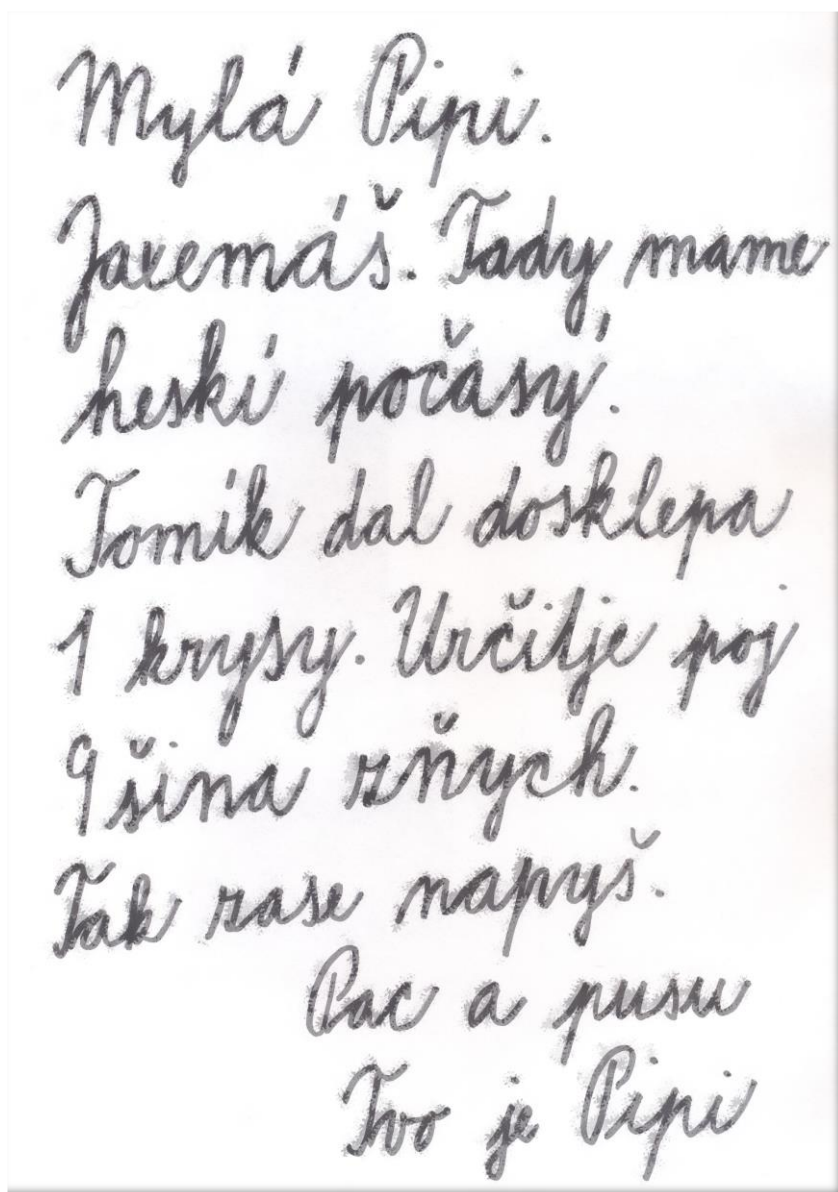 Mylá Pipi.
Jaxemáš. Tady mame
heskí počásý.
Tomík dal dosklepa
1 krysy. Určilje poj
9šina rňych.
Tak zase napyš.
Pac a pusu
Tvo je Pipi